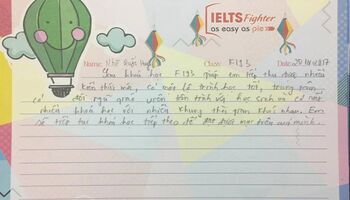 IELTS Fighter
as easy as pie
Name: Class: F193 Date:
Sau khoá học F193 giúp em tiếp thu được nhiều
kiến thức mới, có một lộ trình học tốt, trung gian
có đội ngũ giáo viên tận tình và học sinh và có rất
nhiều khoá học với nhiều khung thời gian khác nhau. Em
sẽ tiếp tục khoá học tiếp theo để đạt được mục tiêu của mình.